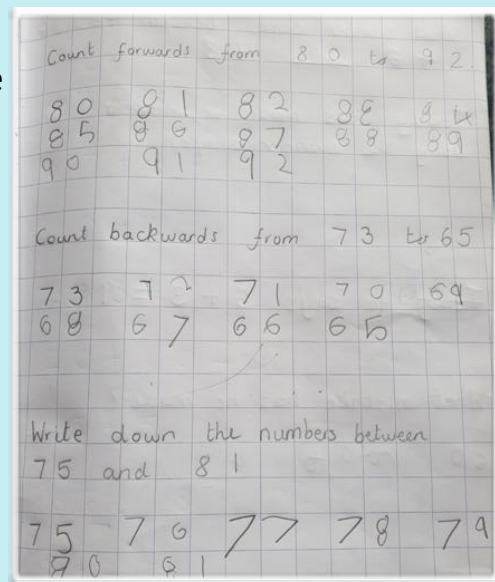 Count forwards from 80 to 92.
80 81 82 83 84
85 86 87 88 89
90 91 92
Count backwards from 73 to 65
73 72 71 70 69
68 67 66 65
Write down the numbers between
75 and 81
75 76 77 78 79